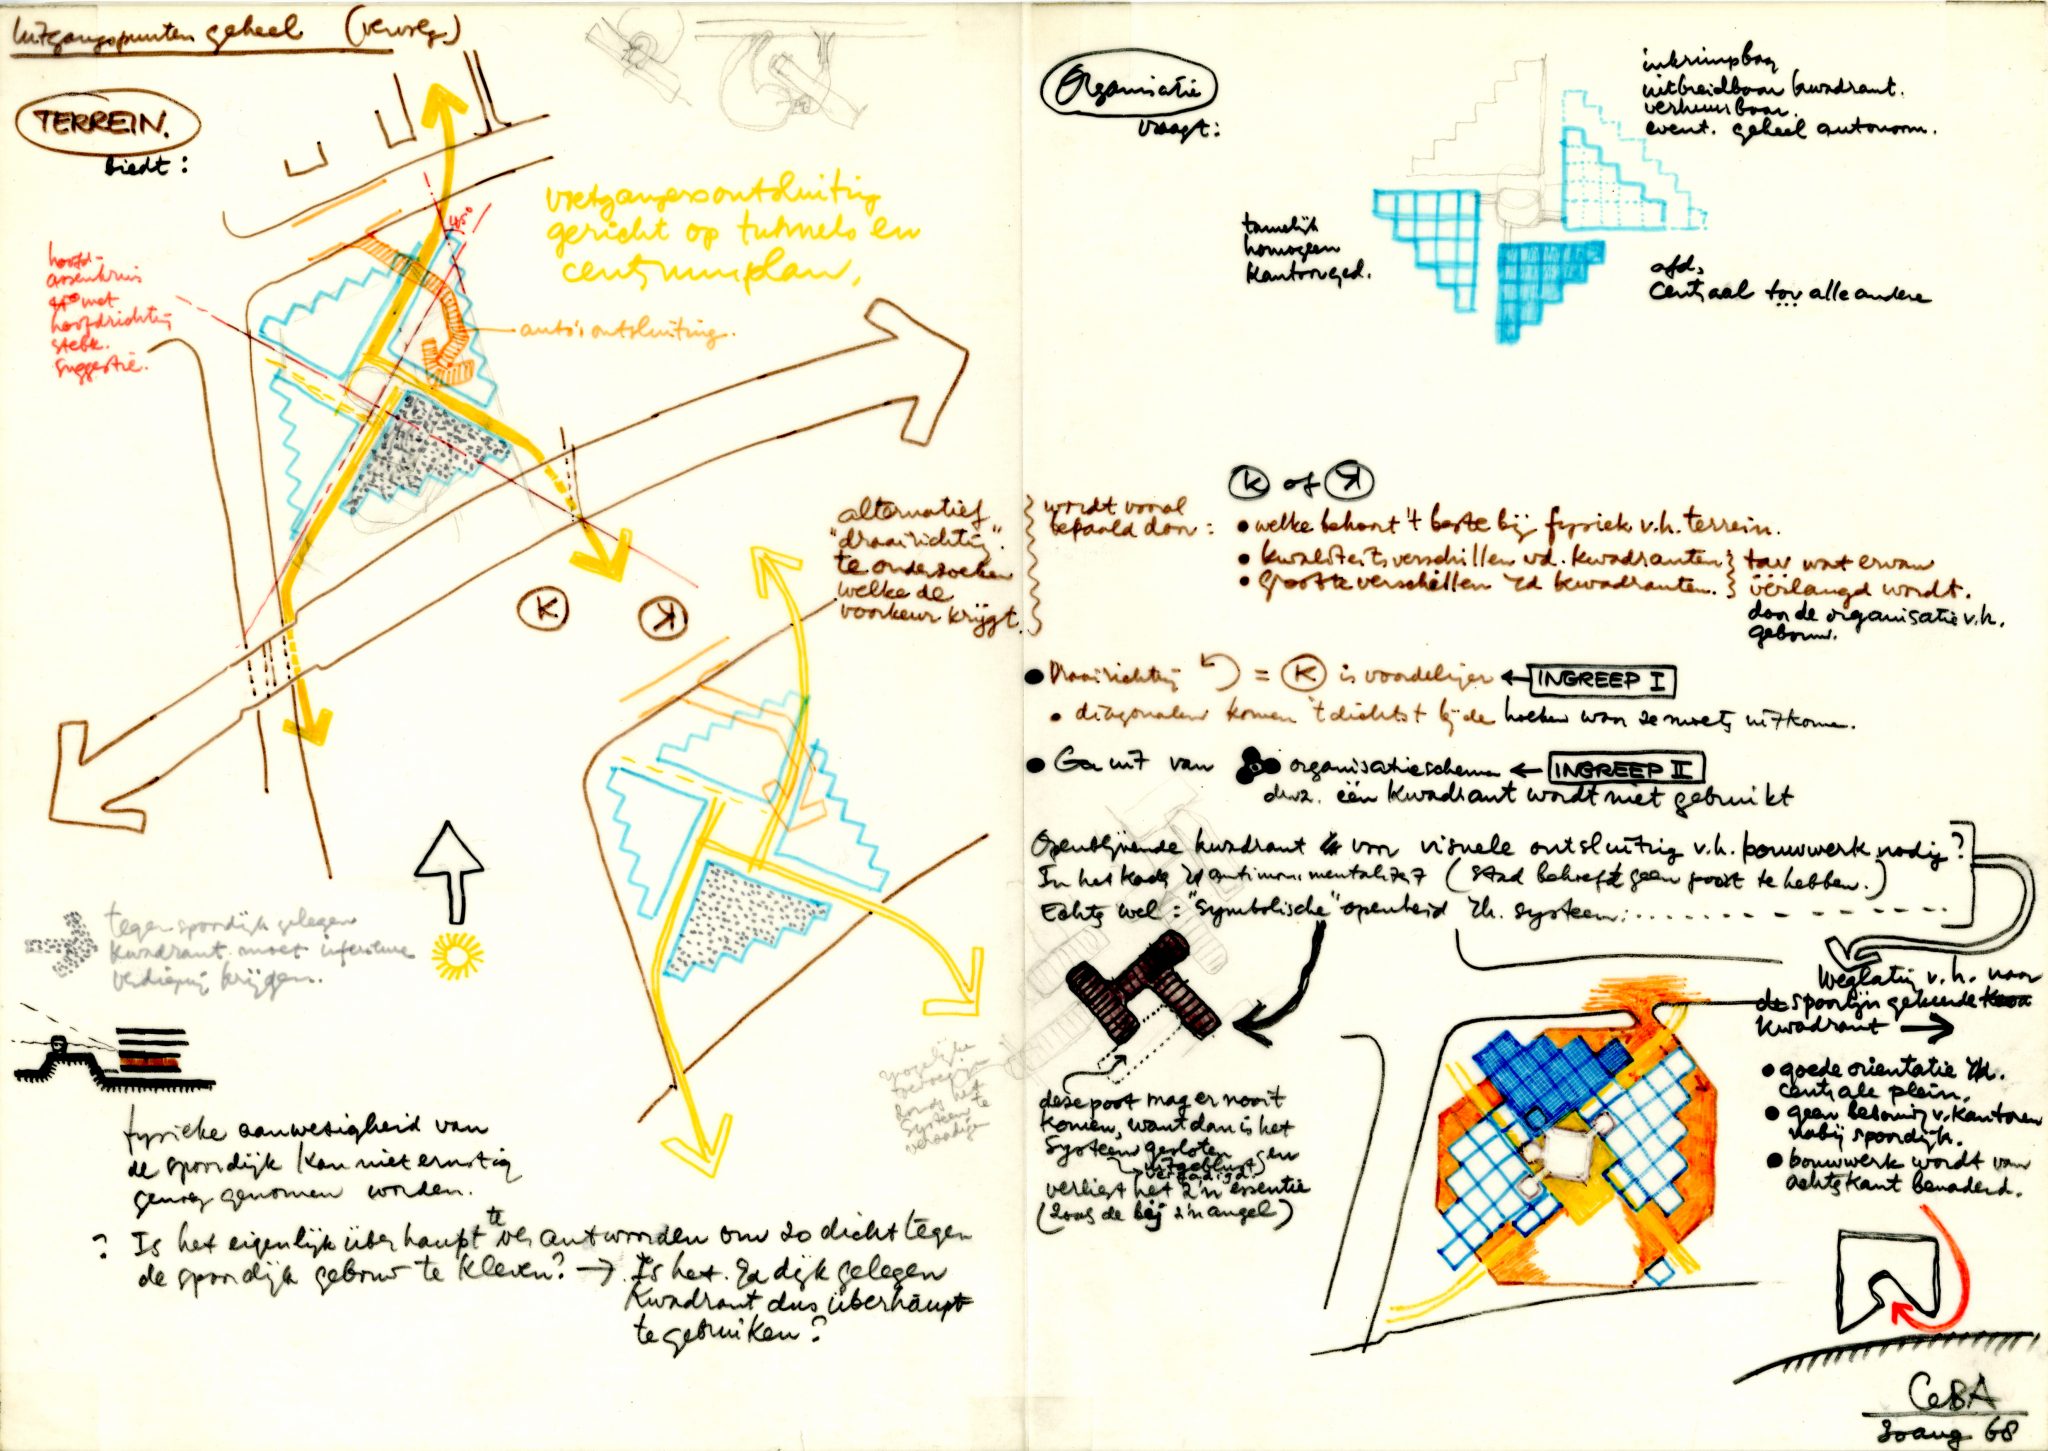 Uitgangspunten geheel (vervolg)
TERREIN.
biedt:
voetgangersontsluiting
gericht op tunnels en
centrumplan.
45°
hoofd-
assenkruis
45° met
hoofdrichting
stebk.
suggestie.
auto's ontsluiting.
alternatief
"draairichting".
te onderzoeken
welke de
voorkeur krijgt.
K
K
tegen spoordijk gelegen
kwadrant moet inferieure
verdieping krijgen.
fysieke aanwezigheid van
de spoordijk kan niet ernstig
genoeg genomen worden.
? Is het eigenlijk überhaupt te verantwoorden om zo dicht tegen
de spoordijk gebouw te kleven? → Is het. zd dijk gelegen
kwadrant dus überhaupt
te gebruiken?
mogelijke
zonder het
systeem te
Organisatie
vraagt:
inkrimpbaar
uitbreidbaar kwadrant.
verhuurbaar.
event. geheel autonoom.
tamelijk
homogeen
kantoorged.
afd.
centraal tov alle andere
K of K
wordt vooral
bepaald door:
• welke behoort 't beste bij fysiek v.h. terrein.
• kwaliteitsverschillen vd. kwadranten
• grootte verschillen vd kwadranten.
tav wat ervan
verlangd wordt.
door de organisatie v.h.
gebouw.
• Draairichting = K is voordeliger ← INGREEP I
• diagonalen komen 't dichtst bij de hoeken waar ze moeten uitkomen.
• Ga uit van organisatieschema ← INGREEP II
dwz. één kwadrant wordt niet gebruikt
Openblijvende kwadrant voor visuele ontsluiting v.h. bouwwerk nodig?
In het kader antimonumentaliteit (stad behoeft geen poort te hebben.)
Echter wel: "symbolische" openheid vh. systeem:
deze poot mag er nooit
komen, want dan is het
systeem gesloten en
uitgeblust
verzadigd.
verliest het z'n essentie
(zoals de bij z'n angel)
weglating v.h. naar
de spoorlijn gekeerde
kwadrant →
• goede orientatie vh.
centrale plein.
• geen v. kantoren
nabij spoordijk.
• bouwwerk wordt van
achterkant benaderd.
CeBA
30 aug 68